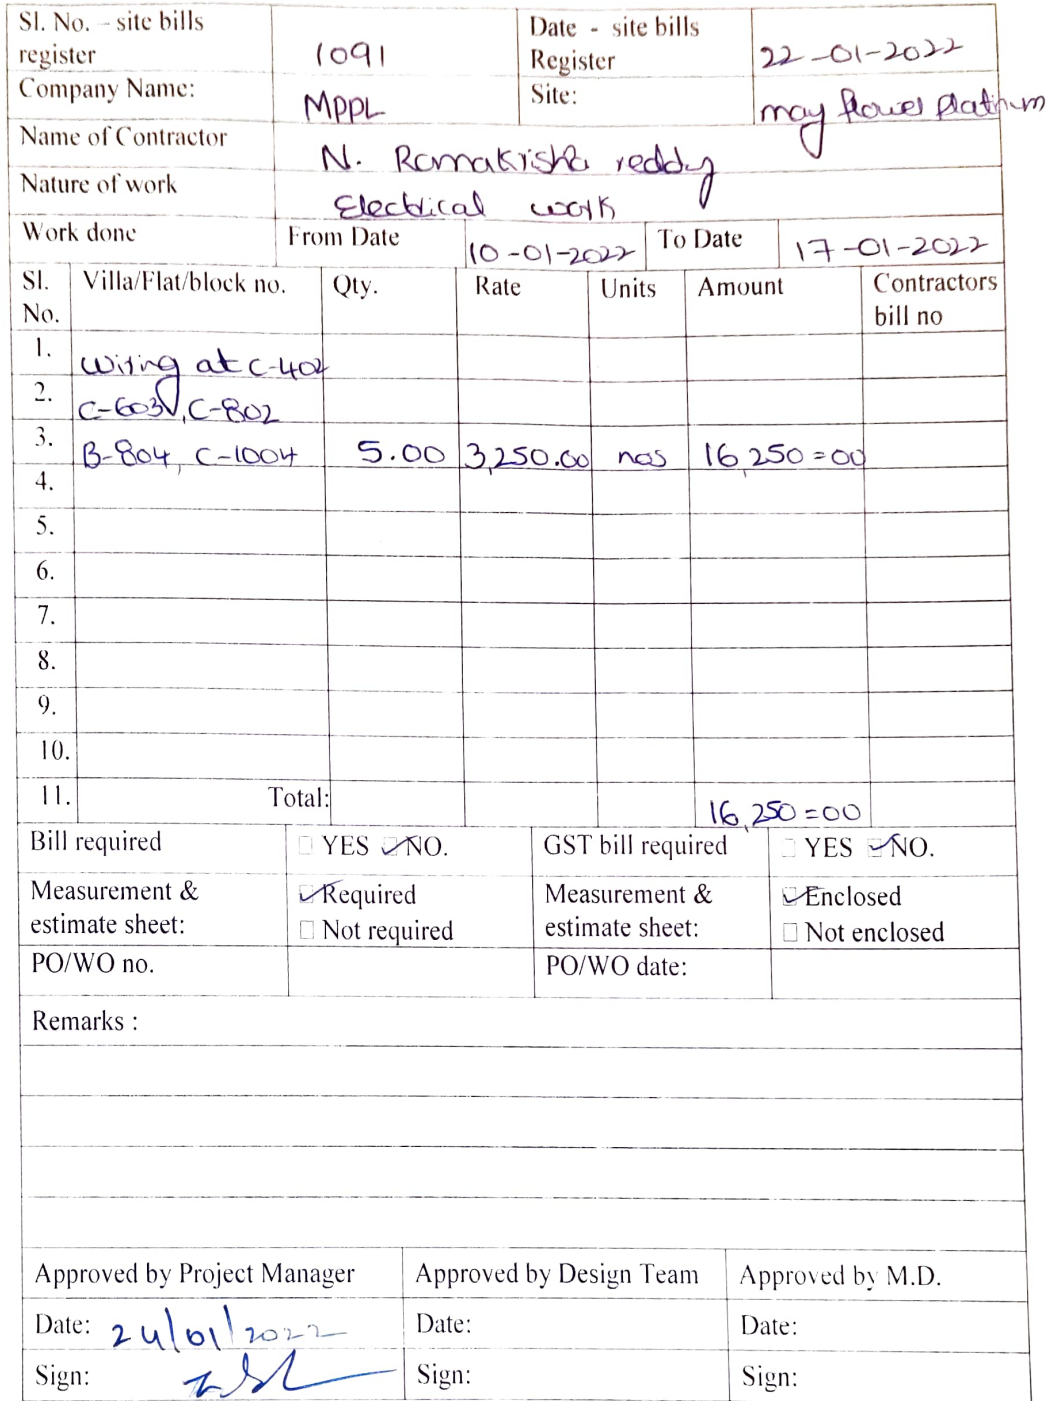 Sl. No. - site bills register 1091 Date - site bills Register 22-01-2022
Company Name: MPPL Site: may flower platinum
Name of Contractor N. Ramakrisha reddy
Nature of work Electrical work
Work done From Date 10-01-2022 To Date 17-01-2022
Sl. No. Villa/Flat/block no. Qty. Rate Units Amount Contractors bill no
1. Wiring at C-402
2. C-603, C-802
3. B-804, C-1004 5.00 3,250.00 nos 16,250=00
4.
5.
6.
7.
8.
9.
10.
11. Total: 16,250=00
Bill required YES NO. GST bill required YES NO.
Measurement & estimate sheet: Required Measurement & estimate sheet: Enclosed
Not required Not enclosed
PO/WO no. PO/WO date:
Remarks :
Approved by Project Manager Approved by Design Team Approved by M.D.
Date: 24/01/2022 Date: Date:
Sign: Sign: Sign: